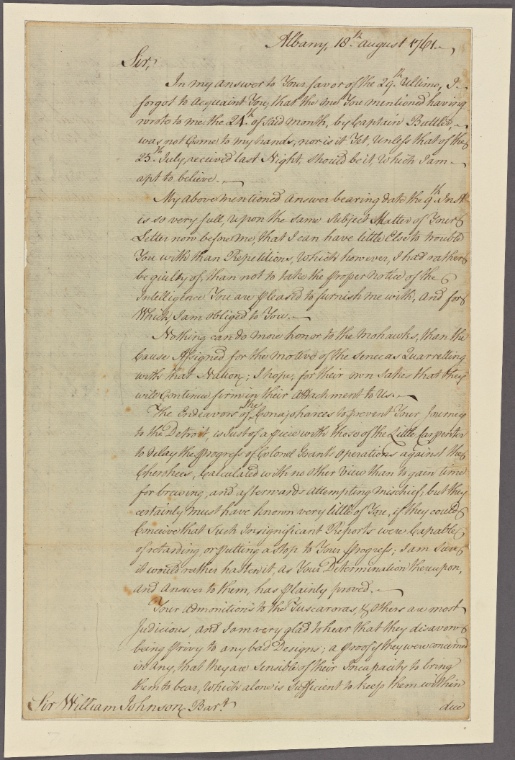 Albany, 18th august 1761.
Sir,
In my answer to Your favor of the 29th Ultimo, I
forgot to acquaint You, that the one You mentioned having
wrote to me the 24th of said Month, by Captain Balltle
was not Come to my hands, nor is it Yet, Unless that of the
25th July, received last Night, should be it which I am
apt to believe.
My above mentioned Answer bearing date the 9th Inst.
is so very full, upon the same Subject Matter of Your
Letter now before me, that I can have little Else to trouble
You with than Repetitions, which however, I had rather
be guilty of, than not to take the proper Notice of the
Intelligence You are pleased to furnish me with, and for
Which, I am obliged to You.
Nothing can do more honor to the Mohawks, than the
Cause Assigned for the motive of the Senecas Quarrelling
with that Nation; I hope, for their own sakes that they
will Continue firm in their Attachment to Us.
The Endeavors of the Conajoharees to prevent Your Journey
to the Detroit, is just of a piece with those of the Little Carpenter
to delay the progress of Colonel Grants Operations against the
Cherokees, Calculated with no other View than to gain time
for brewing, and afterwards attempting mischief, but they
certainly must have known very little of You, if they could
Conceive that Such Insignificant Reports were Capable
of retarding or putting a Stop to Your progress; I am Sure
it would rather hasten it, as Your Determination thereupon,
and Answer to them, has plainly proved.
Your admonitions to the Tuscaroras, & others are most
Judicious, and I am very glad to hear that they disavow
being privy to any bad Designs; a proof if they were concerned
in any, that they are Sensible of their Incapacity to bring
them to bear, which alone is Sufficient to keep them within
Sir William Johnson Bart.
due